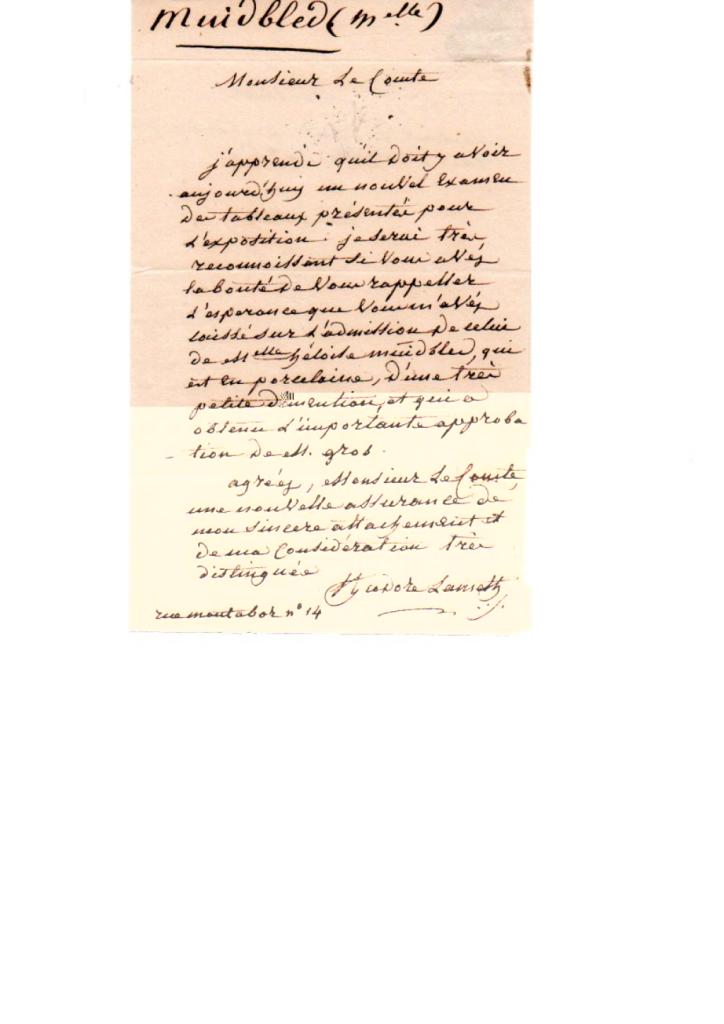 Muidbled (melle)
Monsieur Le Comte
j'apprends qu'il doit y avoir
aujourd'huy un nouvel Examen
des tableaux présentés pour
L'exposition : je serai très
reconnoissant si Vous avés
la bonté de Vous rappeller
L'esperance que Vous m'avés
laissé sur L'admission de celui
de Melle héloïse muidbled, qui
est En porcelaine, D'une très
petite dimention, et qui a
obtenu L'importante approba
tion De M. gros.
agréés, Monsieur Le Comte,
une nouvelle assurance de
mon sincere attachement et
De ma Considération très
distinguée
Théodore Lameth
rue montabor n° 14